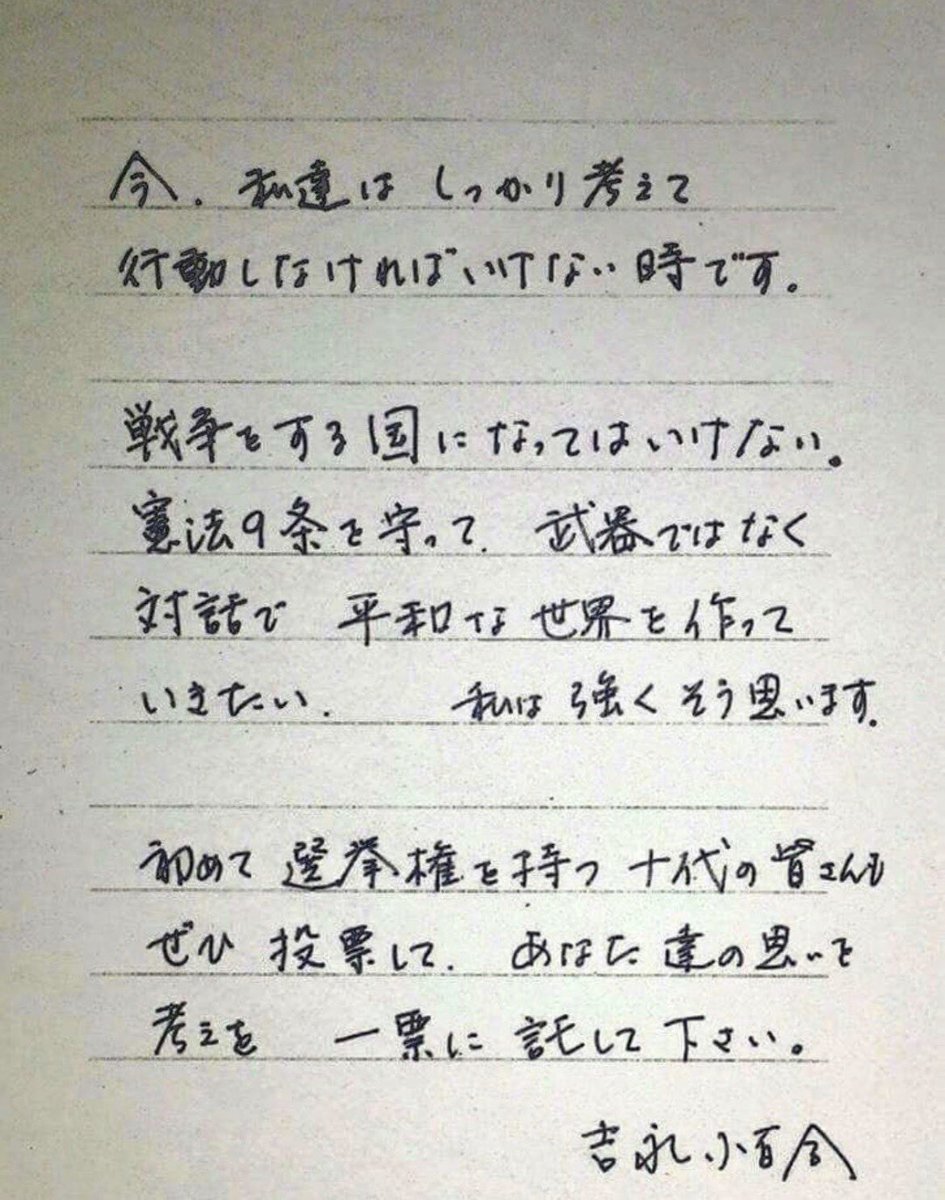 今、私達は しっかり考えて
行動しなければいけない時です。
戦争をする国になってはいけない。
憲法9条を守って、武器ではなく
対話で 平和な世界を作って
いきたい、 私は強くそう思います。
初めて選挙権を持つ 十代の皆さんも
ぜひ 投票して、あなた達の思いを
考えを 一票に託して下さい。
吉永小百合